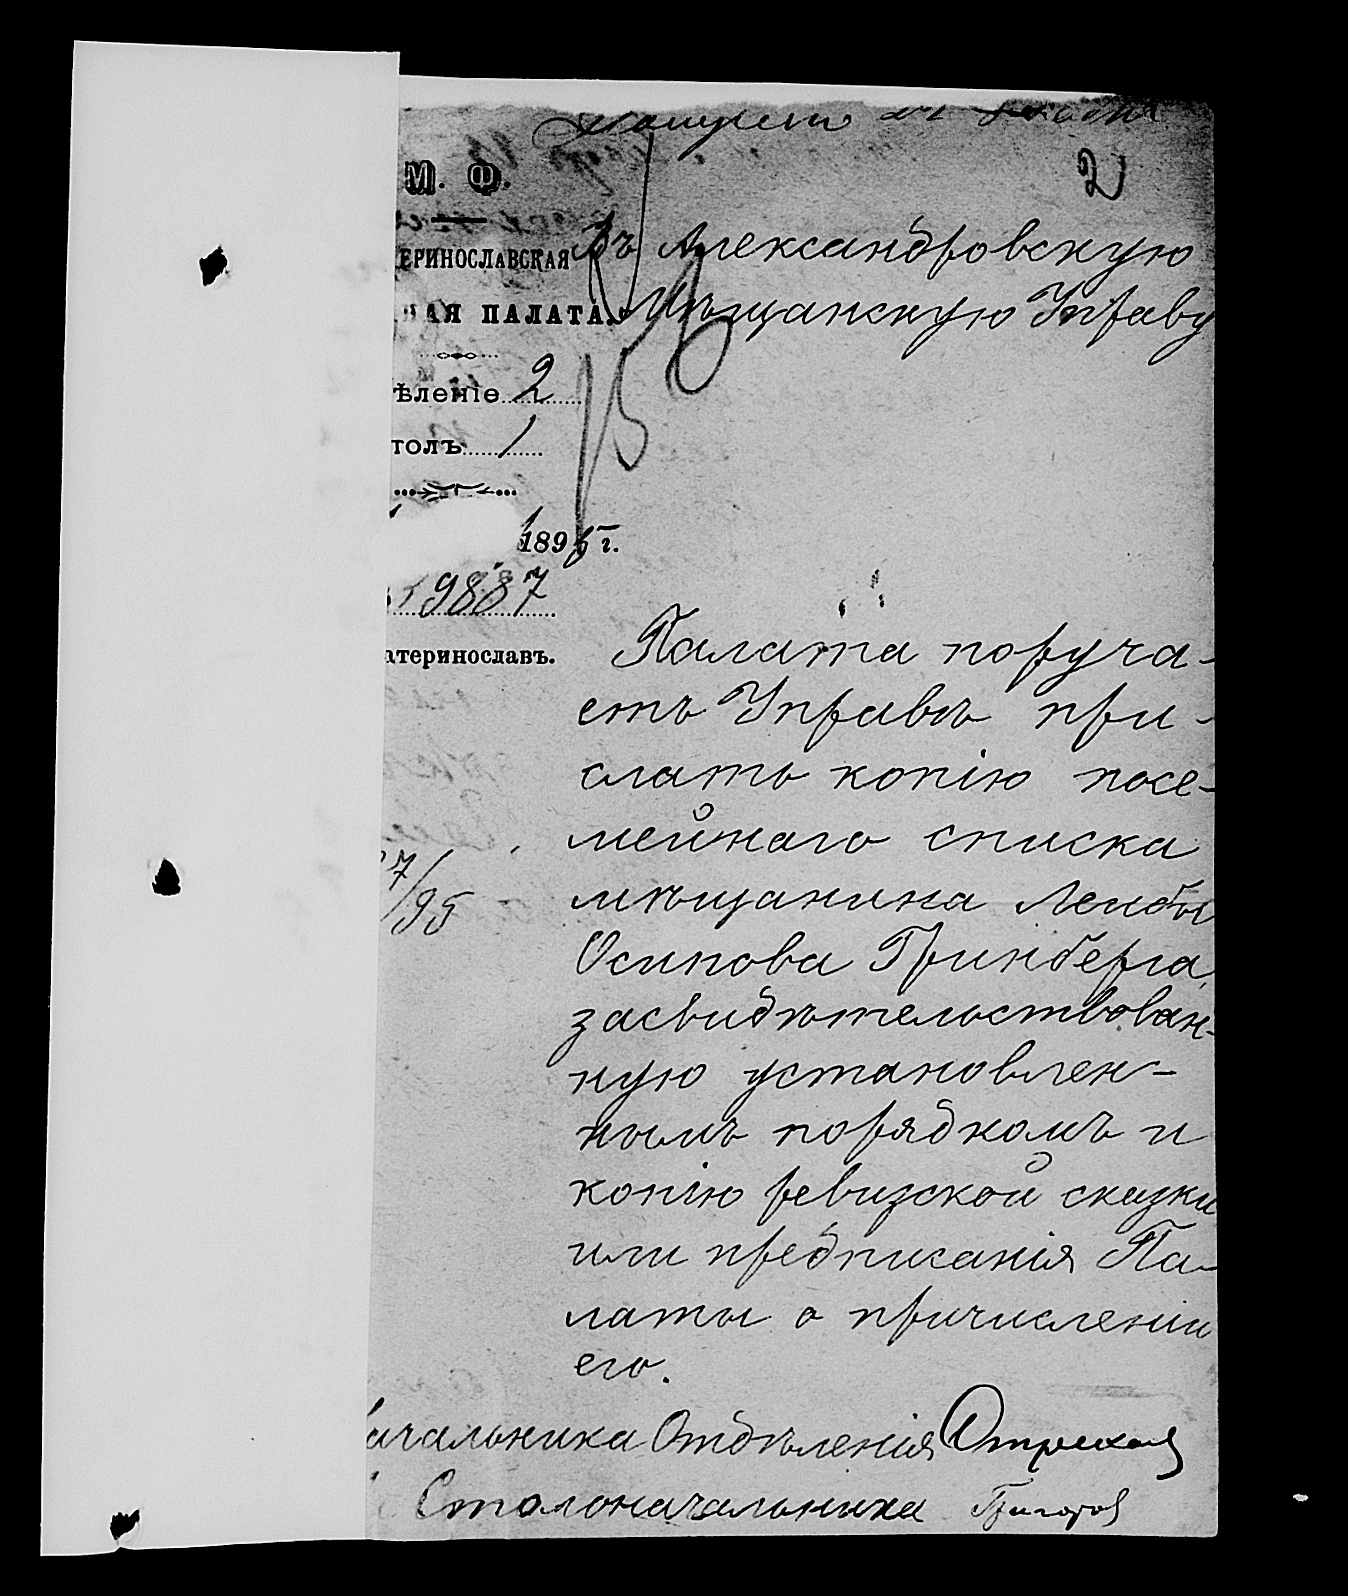 2
М. Ф.
ЕРИНОСЛАВСКАЯ
НАЯ ПАЛАТА.
ѣленіе 2
толъ 1
1895 г.
9887
атеринославъ.
7/95
Въ Александровскую
Мѣщанскую Управу
Палата поруча-
етъ Управѣ при-
слать копію посе-
мейнаго списка
мѣщанина Лейбы
Осипова Гринберга,
засвидѣтельствован-
ную установлен-
нымъ порядкомъ и
копію ревизской сказки
или предписанія Па-
латы о причисленіи
его.
ачальника Отдѣленія
Столоначальника Григоров